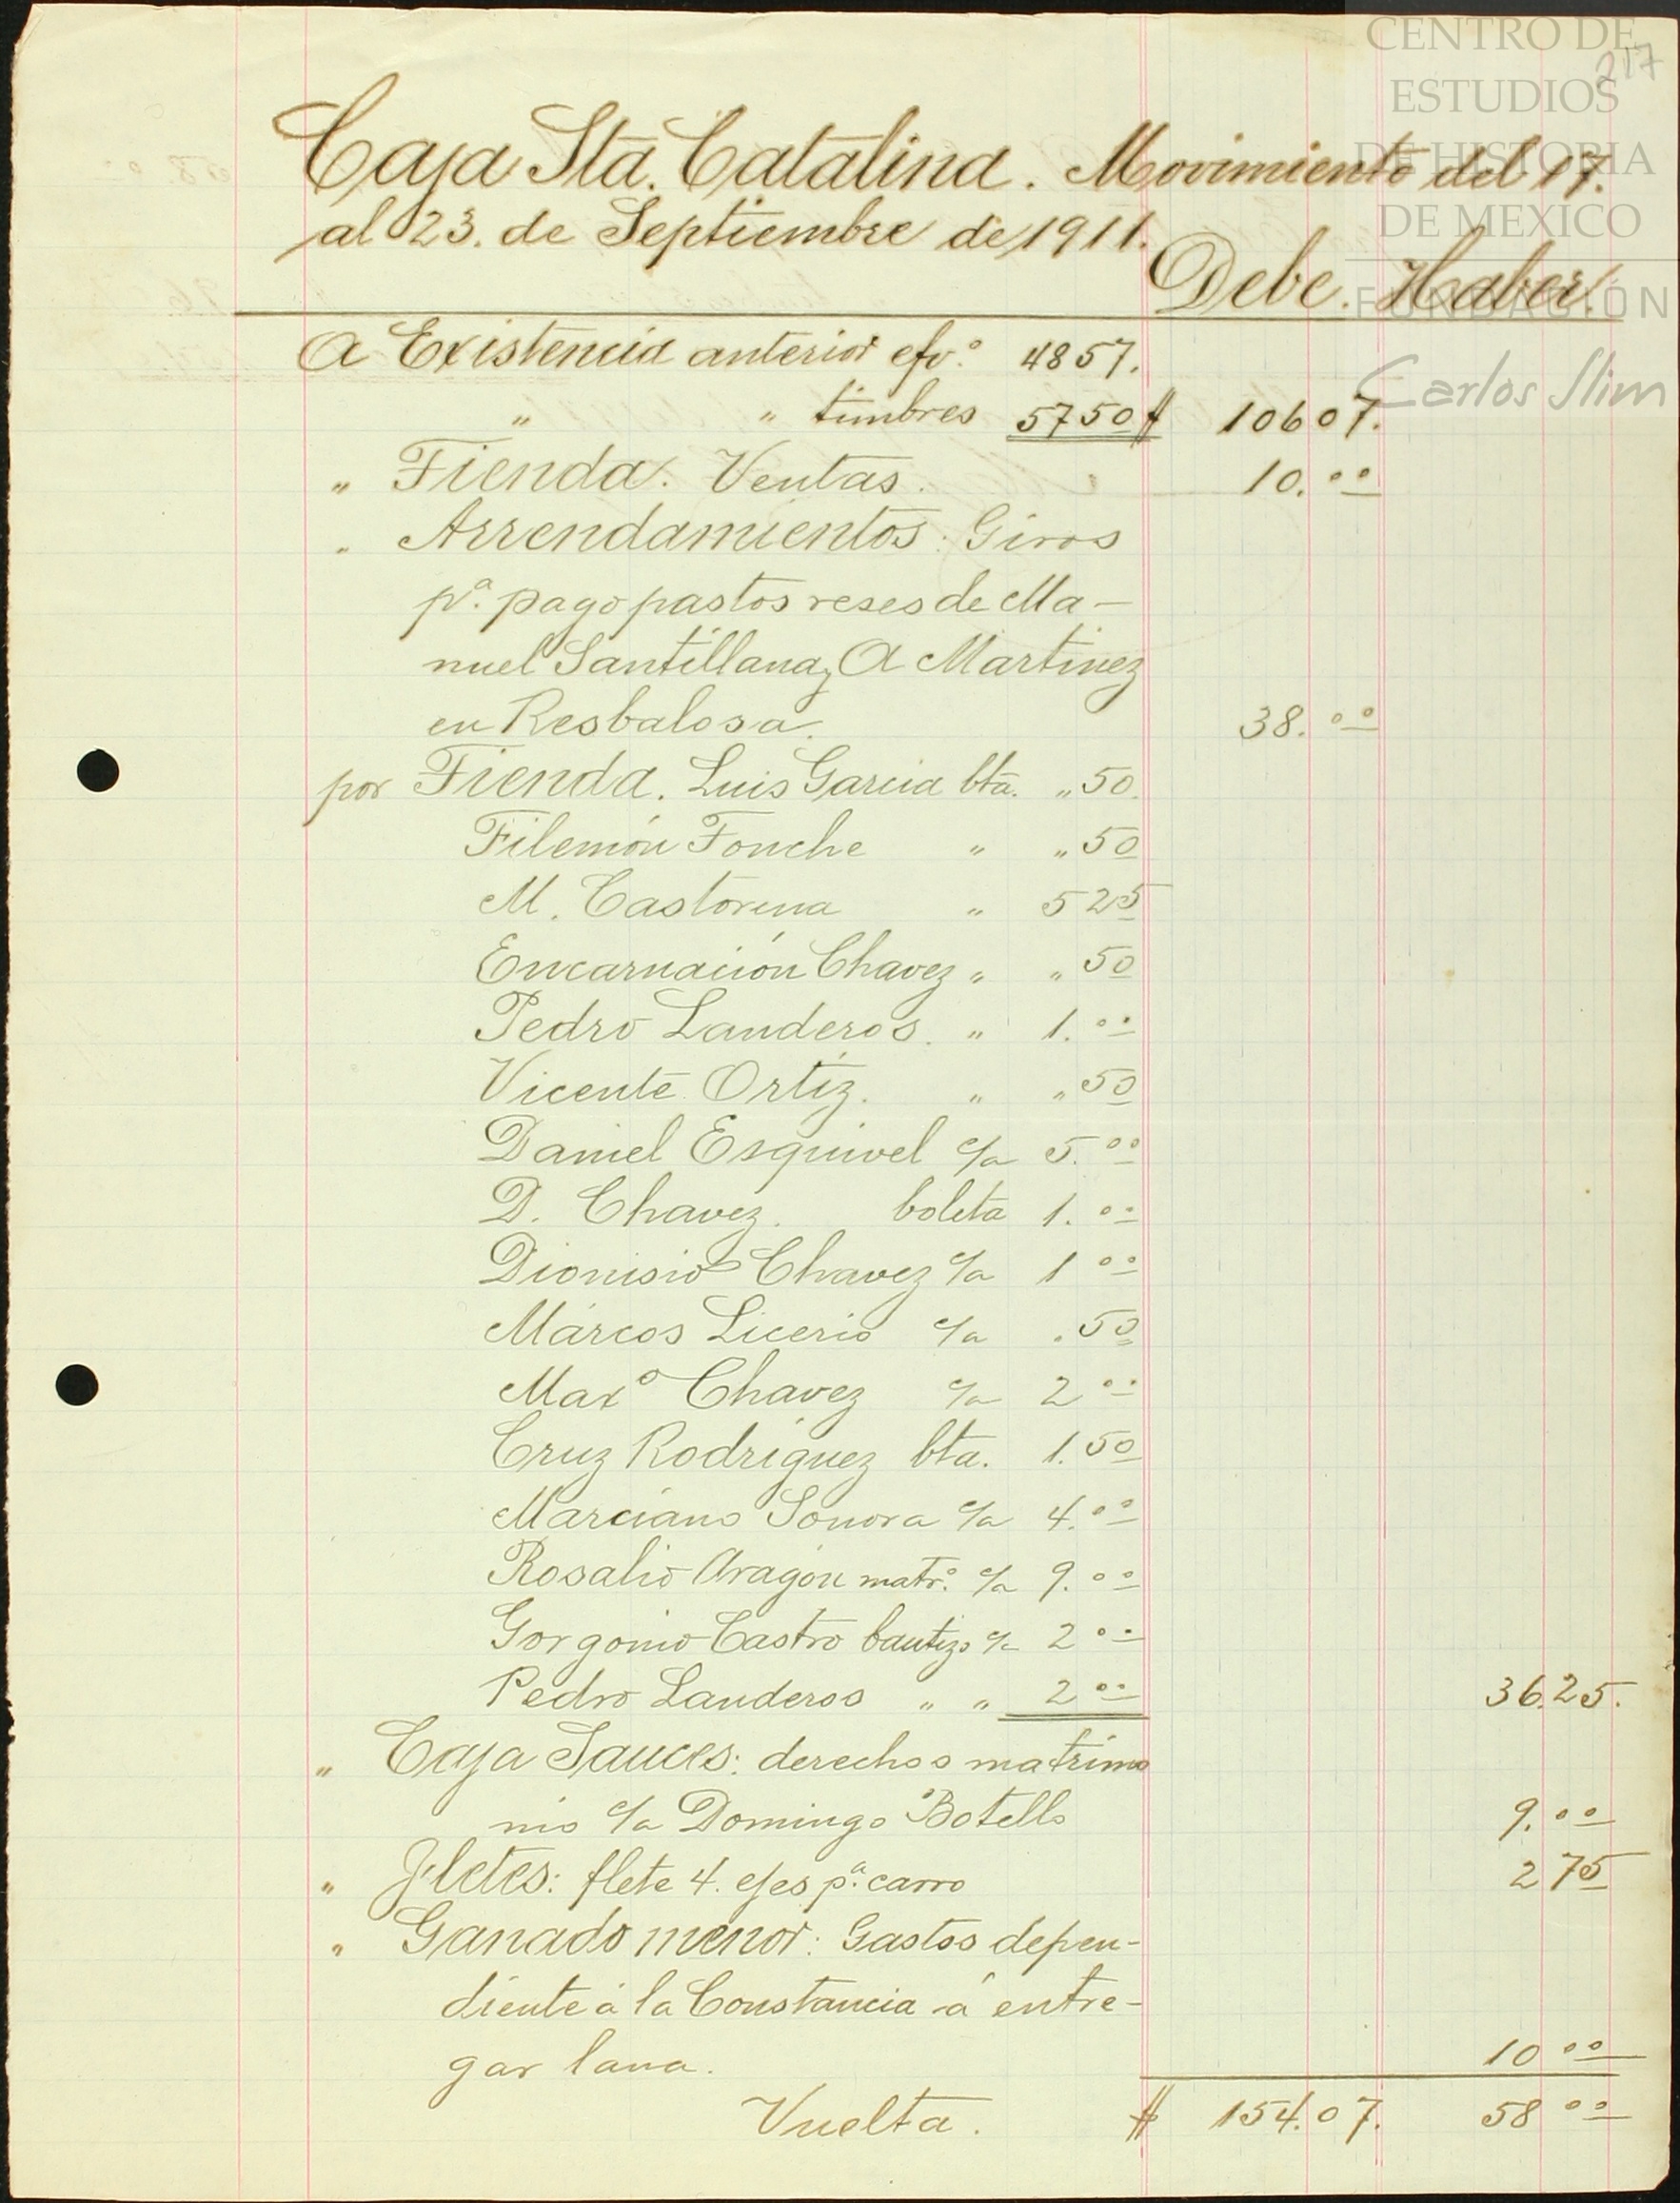 217
CENTRO DE
ESTUDIOS
DE HISTORIA
DE MEXICO
FUNDACIÓN
Carlos Slim
Caja Sta. Catalina. Movimiento del 17.
al 23. de Septiembre de 1911.
Debe. Haber.
A Existencia anterior efvo. 4857.
" " timbres 5750 $ 10607.
" Tienda. Ventas. 10.00
" Arrendamientos: Giros
pa. pago pastos reses de Ma-
nuel Santillana, A Martinez
en Resbalosa. 38.00
por Tienda. Luis Garcia bta. " 50.
Filemón Fonche " " 50
M. Castorena " 5 25
Encarnación Chavez " " 50
Pedro Landeros. " 1.00
Vicente Ortiz. " " 50
Daniel Esquivel c/a 5.00
D. Chavez. boleta 1.00
Dionisio Chavez c/a 1 00
Márcos Licerio c/a . 50
Maxo Chavez c/a 2 00
Cruz Rodriguez bta. 1.50
Marciano Sonora c/a 4.00
Rosalio Aragón matro. c/a 9.00
Gorgonio Castro bautizo c/a 2 00
Pedro Landeros " " 2 00 36.25.
" Caja Sauces: derechos matrimo
nio c/a Domingo Botello 9.00
" Fletes: flete 4. ejes pa. carro 2 75
" Ganado menor: Gastos depen-
diente á la Constancia á entre-
gar lana. 10 00
Vuelta. $ 154.07. 58 00